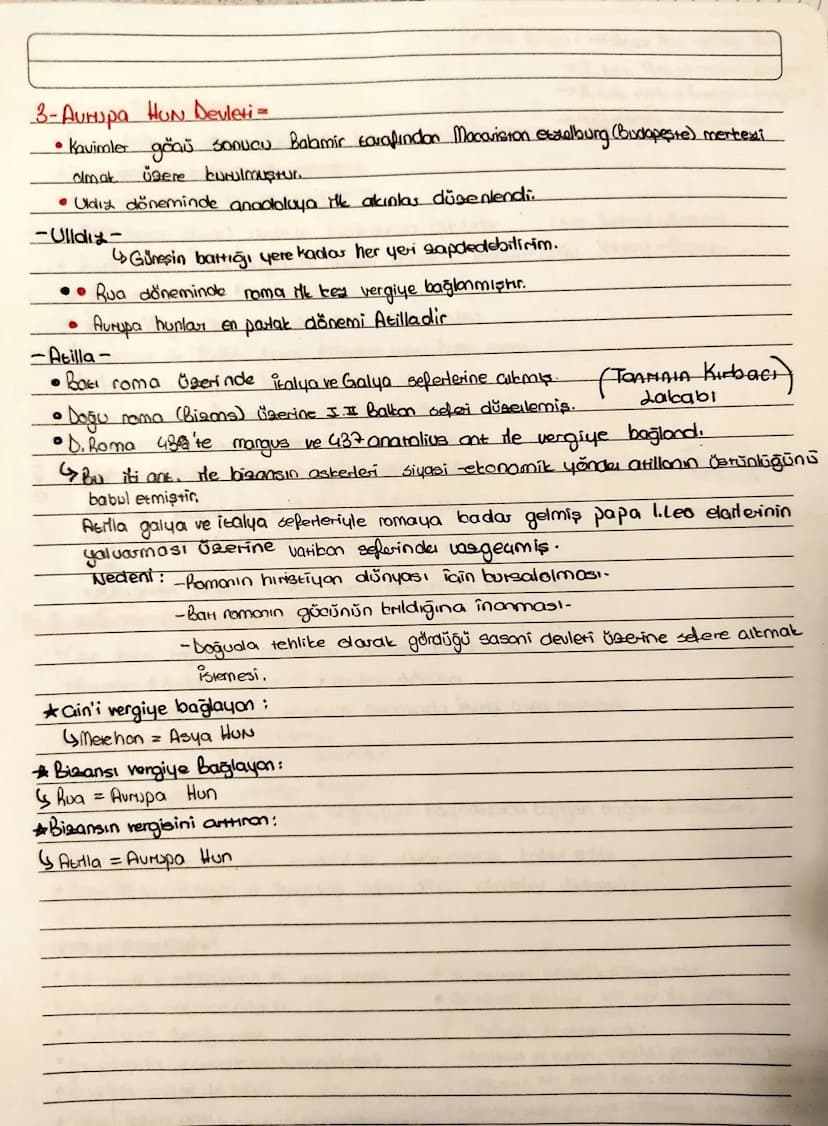 3- Avrupa Hun Devleti =
• Kavimler göçü sonucu Balamir tarafından Macaristan etzelburg (Budapeşte) merkezi
olmak üzere kurulmuştur.
• Uldız döneminde anadoluya ilk akınlar düzenlendi.
- Ulldız -
↳ Güneşin battığı yere kadar her yeri zapdedebilirim.
• • Rua döneminde roma ilk kez vergiye bağlanmıştır.
• Avrupa hunları en parlak dönemi Atilladir
- Atilla -
• Batı roma üzerinde italya ve Galya seferlerine çıkmış. (Tanrının Kırbacı)
lakabı
• Doğu roma (Bizans) üzerine I. II Balkan seferi düzenlemiş.
• D. Roma 434'te margus ve 437 anatolius ant ile vergiye bağlandı.
↳ Bu iki ant. ile bizansın askerleri siyasi - ekonomik yönden atillanın üstünlüğünü
kabul etmiştir.
Atilla galya ve italya seferleriyle romaya kadar gelmiş papa 1. Leo elçilerinin
yalvarması üzerine vatikan seferinden vazgeçmiş.
Nedeni : - Romanın hıristiyan dünyası için kutsalolması.
- Batı romanın gücünün kırıldığına inanması -
- Doğuda tehlike olarak gördüğü sasani devleti üzerine sefere çıkmak
istemesi.
★ Çin'i vergiye bağlayan :
↳ Metehan = Asya Hun
★ Bizansı vergiye Bağlayan :
↳ Rua = Avrupa Hun
★ Bizansın vergisini arttıran :
↳ Atilla = Avrupa Hun